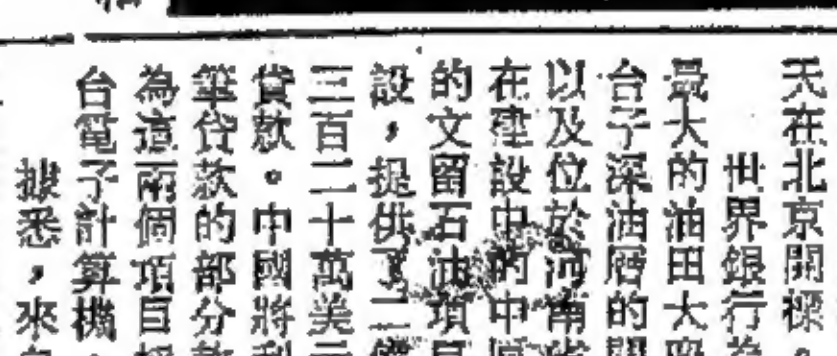 天在北京開標。
世界銀行為
最大的油田大
台子深油層的開
以及位於河南省
在建設中的中原
的文留石油項目
設,提供了二億
三百二十萬美元
貸款。中國將利
筆貸款的部分款
為這兩個項目採
台電子計算機,
據悉,來自